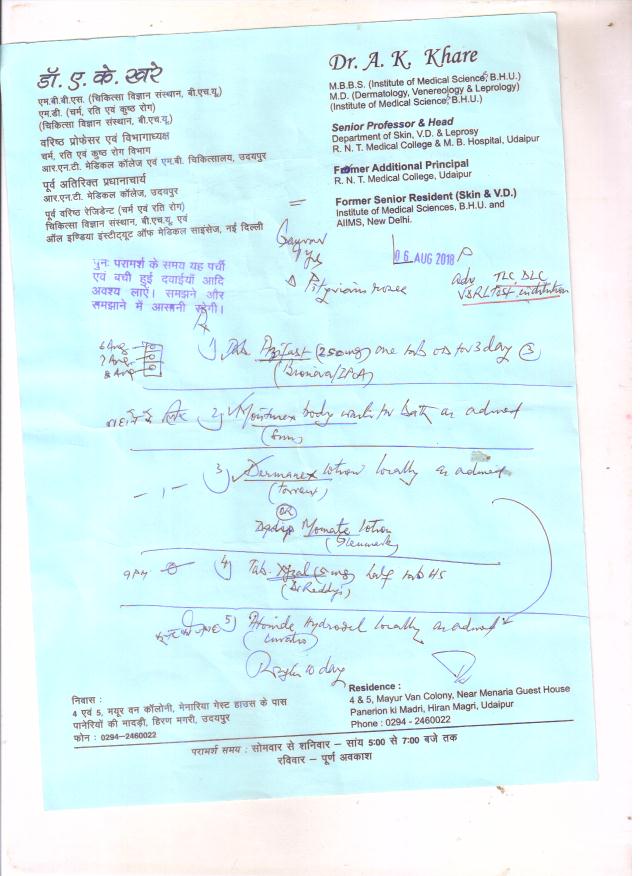 डॉ. ए. के. खरे
एम.बी.बी.एस. (चिकित्सा विज्ञान संस्थान, बी.एच.यू.)
एम.डी. (चर्म, रति एवं कुष्ठ रोग)
(चिकित्सा विज्ञान संस्थान, बी.एच.यू.)
वरिष्ठ प्रोफेसर एवं विभागाध्यक्ष
चर्म, रति एवं कुष्ठ रोग विभाग
आर.एन.टी. मेडिकल कॉलेज एवं एम.बी. चिकित्सालय, उदयपुर
पूर्व अतिरिक्त प्रधानाचार्य
आर.एन.टी. मेडिकल कॉलेज, उदयपुर
पूर्व वरिष्ठ रेजिडेन्ट (चर्म एवं रति रोग)
चिकित्सा विज्ञान संस्थान, बी.एच.यू. एवं
ऑल इण्डिया इंस्टीट्यूट ऑफ मेडिकल साइंसेज, नई दिल्ली
Dr. A. K. Khare
M.B.B.S. (Institute of Medical Science, B.H.U.)
M.D. (Dermatology, Venereology & Leprology)
(Institute of Medical Science, B.H.U.)
Senior Professor & Head
Department of Skin, V.D. & Leprosy
R. N. T. Medical College & M. B. Hospital, Udaipur
Former Additional Principal
R. N. T. Medical College, Udaipur
Former Senior Resident (Skin & V.D.)
Institute of Medical Sciences, B.H.U. and
AIIMS, New Delhi.
पुनः परामर्श के समय यह पर्ची
एवं बची हुई दवाईयाँ आदि
अवश्य लाएें। समझने और
समझाने में आसानी रहेगी।
06 AUG 2018
Pityriasis rosea
adv TLC DLC
VDRL Test
6 Aug
7 Aug
8 Aug
1) Tab. (250mg) one tab OD for 3 day
2) Moisturex body wash for bath as advised
(Sun)
3) Dermarex lotion locally as advised
(Torrent)
OR
Momate lotion
(Glenmark)
9 PM
4) Tab. Xyzal (5mg) half tab HS
(Dr Reddy's)
5) Atomide Hydrogel locally as advised
(Curatio)
10 day
निवास :
4 एवं 5, मयूर वन कॉलोनी, मेनारिया गेस्ट हाउस के पास
पानेरियों की मादड़ी, हिरण मगरी, उदयपुर
फोन : 0294-2460022
Residence :
4 & 5, Mayur Van Colony, Near Menaria Guest House
Panerion ki Madri, Hiran Magri, Udaipur
Phone : 0294 - 2460022
परामर्श समय : सोमवार से शनिवार – सांय 5:00 से 7:00 बजे तक
रविवार – पूर्ण अवकाश